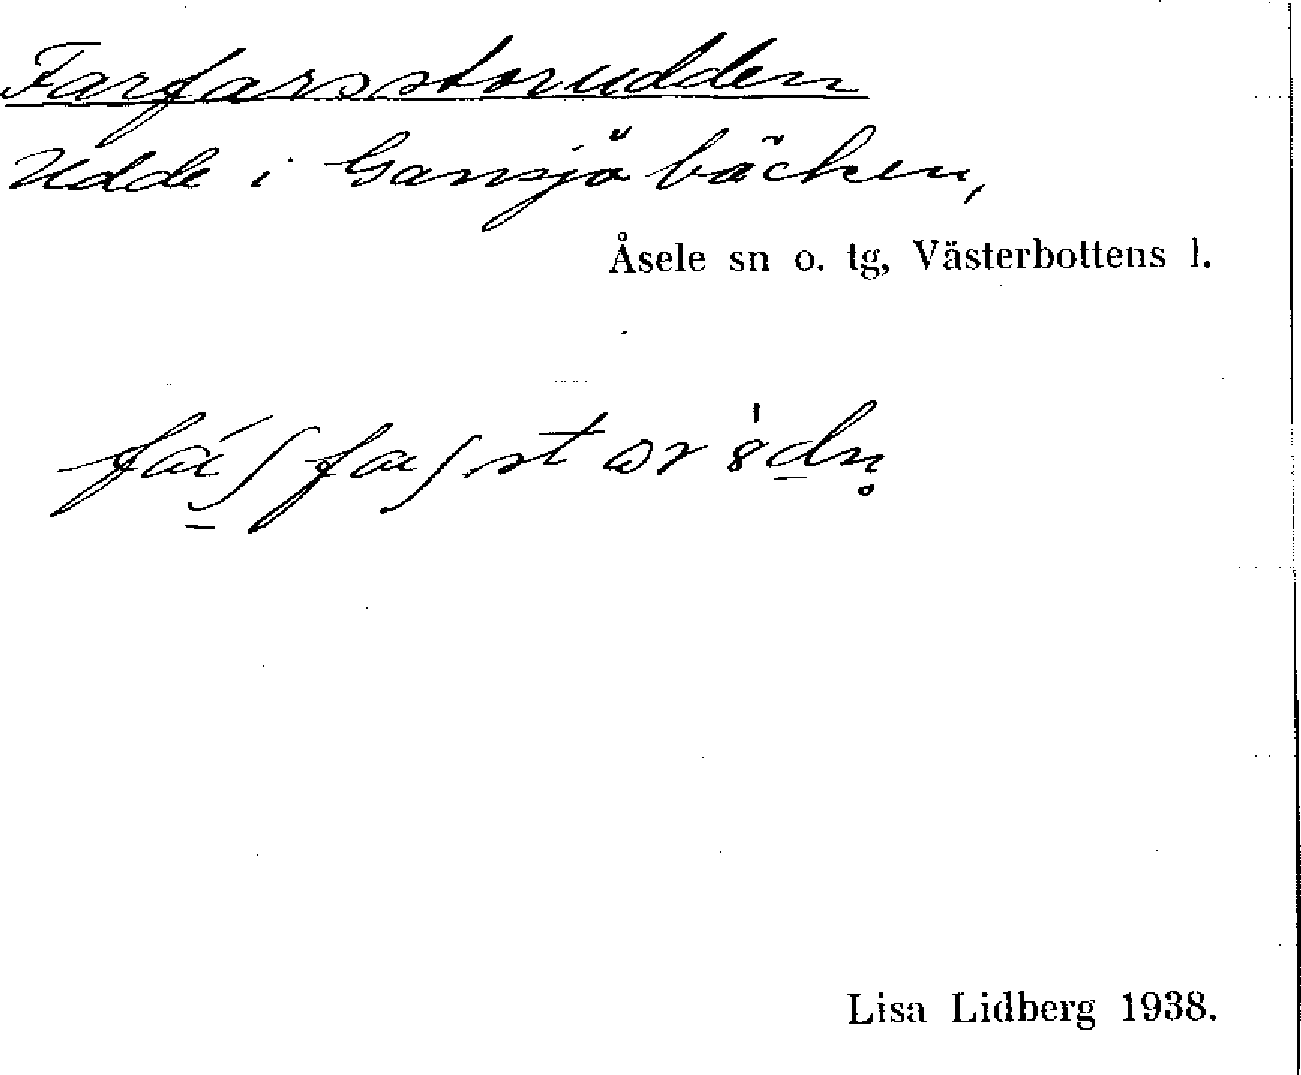 Farfarsstorudden
Udde i Gansjöbäcken,
Åsele sn o. tg, Västerbottens l.
Lisa Lidberg 1938.